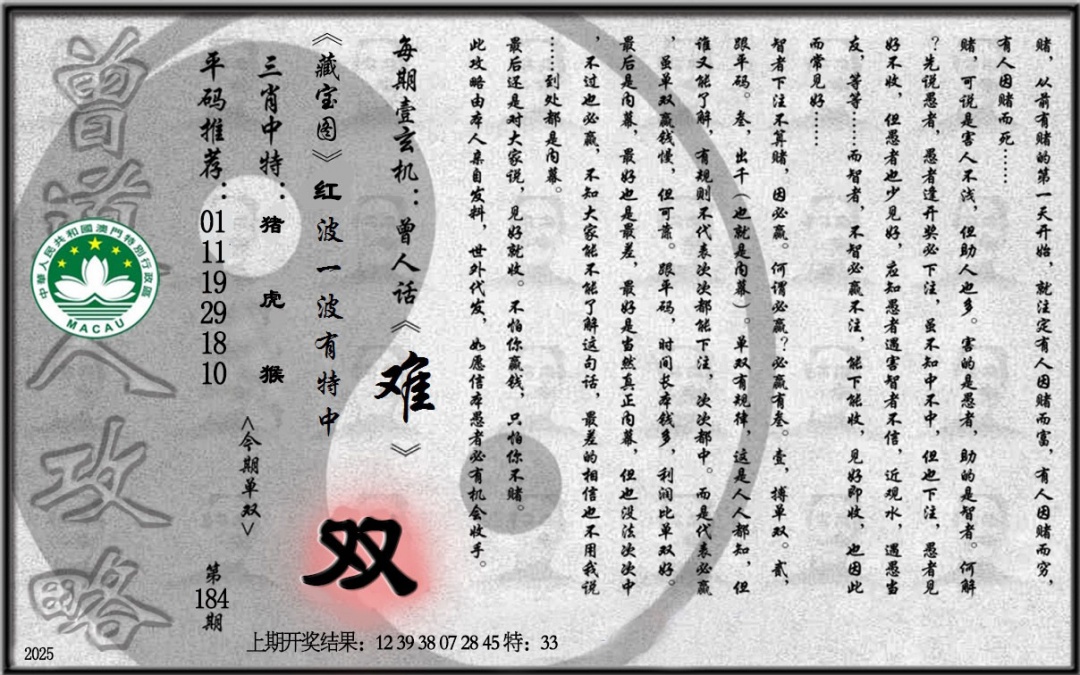 赌，从前有赌的第一天开始，就注定有人因赌而富，有人因赌而穷，
有人因赌而死……
赌，可说是害人不浅，但助人也多。害的是愚者，助的是智者。何解
？先说愚者，愚者逢开奖必下注，虽不知中不中，但也下注，愚者见
好不收，但愚者也少见好，应知愚者遇害智者不信，近观水，遇愚当
友，等等……而智者，不智必赢不注，能下能收，见好即收，也因此
而常见好……
智者下注不算赌，因必赢。何谓必赢？必赢有叁。壹，搏单双。贰，
跟平码。叁，出千（也就是内幕）。单双有规律，这是人人都知，但
谁又能了解，有规则不代表次次都能下注，次次都中。而是代表必赢
，虽单双赢钱慢，但可靠。跟平码，时间长本钱多，利润比单双好。
最后是内幕，最好也是最差，最好是当然真正内幕，但也没法次次中
，不过也必赢，不知大家能不能了解这句话，最差的相信也不用我说
……到处都是内幕。
最后还是对大家说，见好就收。不怕你赢钱，只怕你不赌。
此攻略由本人亲自发料，世外代发，如愿信本愚者必有机会收手。
每期壹玄机：曾人话《难》
《藏宝图》红波一波有特中
双
三肖中特：猪虎猴
<今期单双>
平码推荐：01 11 19 29 18 10
第184期
曾道人攻略
中華人民共和國澳門特別行政區
MACAU
上期开奖结果：12 39 38 07 28 45 特：33
2025